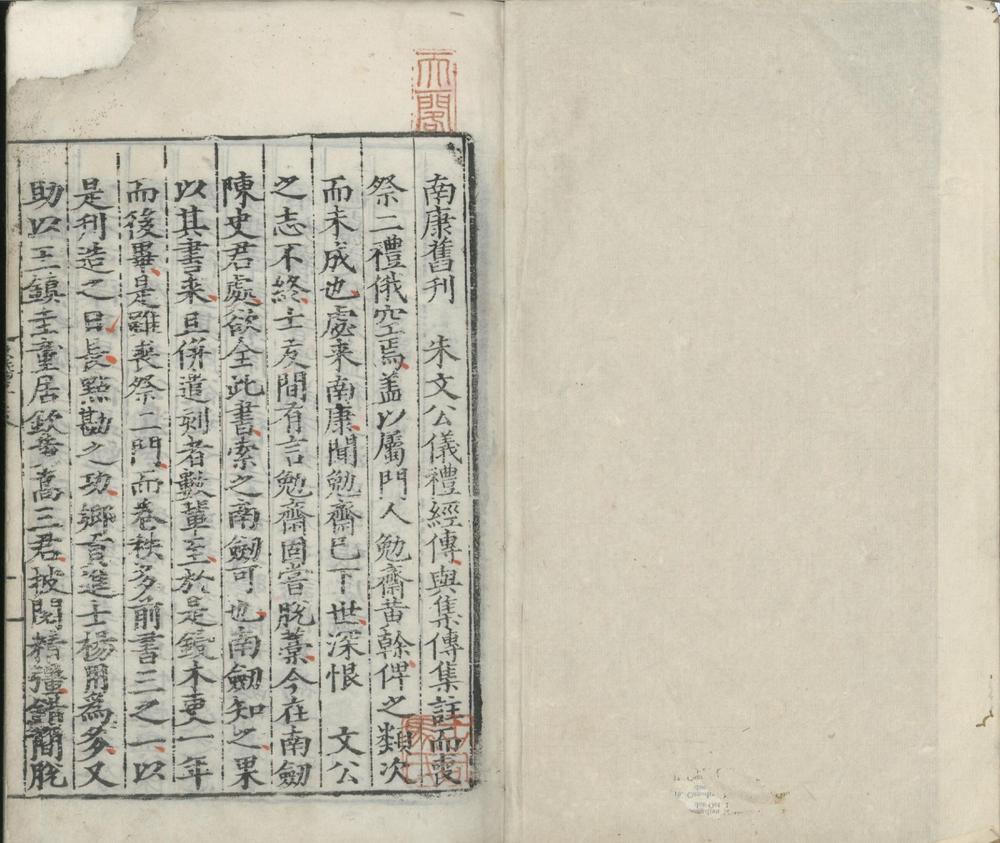 南康舊刊 朱文公儀禮經傳與集傳集註而喪
祭二禮俄空焉蓋以屬門人勉齋黄榦俾之類次
而未成也處来南康聞勉齋已下世深恨 文公
之志不終士友間有言勉齋固嘗脫藁今在南劒
陳史君處欲全此書索之南劒可也南劒知之果
以其書来且併遣刻者數輩至於是鋟木更一年
而後畢是雖喪祭二門而卷秩多前書三之一以
是刋造之日長點勘之功鄉貢進士楊用為多又
助以三鎮主董居欽番喬三君披閱精彊錯簡脫